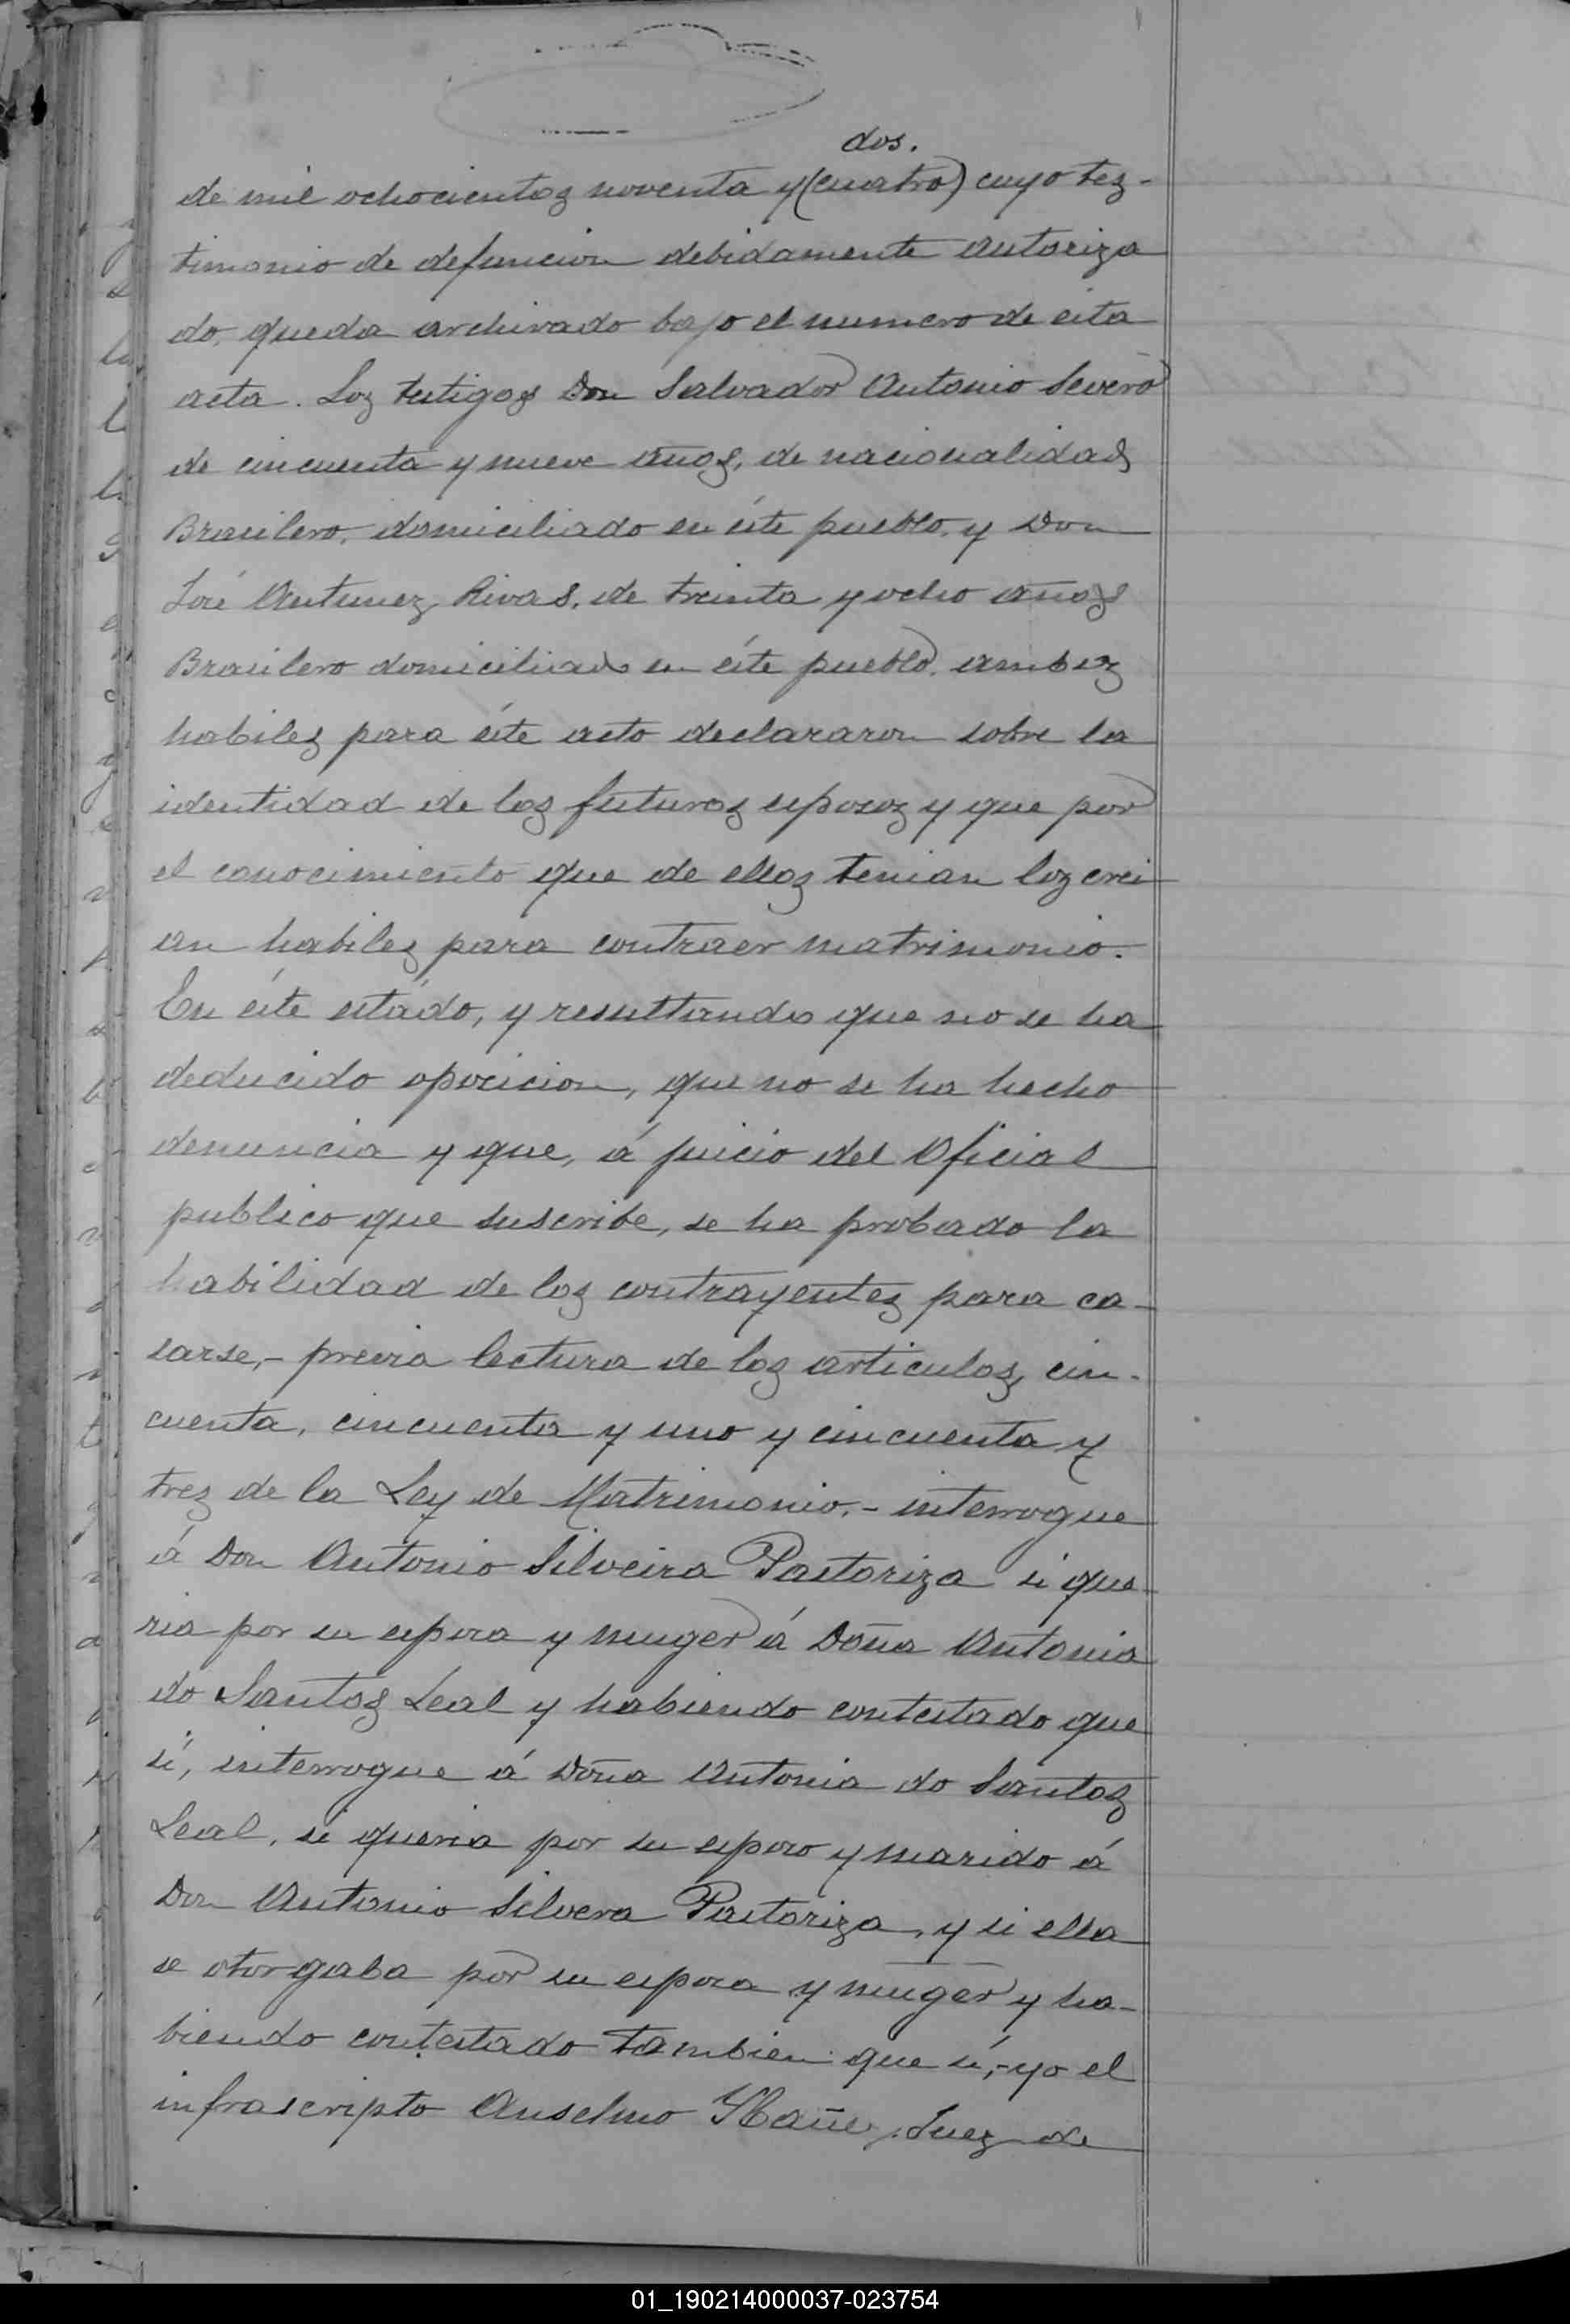 dos.
de mil ochocientos noventa y (cuatro) cuyo tes-
timonio de defuncion debidamente autoriza
do, queda archivado bajo el numero de esta
acta. Los testigos Don Salvador Antonio Severo
de cincuenta y nueve años, de nacionalidad
Brasilero, domiciliado en éste pueblo, y Don
José Antunez Rivas, de treinta y ocho años
Brasilero domiciliado en éste pueblo, ambos
habiles para éste acto declararon sobre la
identidad de los futuros esposos y que por
el conocimiento que de ellos tenian los crei
an habiles para contraer matrimonio.
En éste estádo, y resultando que no se ha
deducido oposicion, que no se ha hecho
denuncia y que, á juicio del Oficial
publico que suscribe, se ha probado la
habilidad de los contrayentes para ca-
sarse,- previa lectura de los articulos, cin-
cuenta, cincuenta y uno y cincuenta y
tres de la Ley de Matrimonio,- interrogue
á Don Antonio Silveira Pastoriza si que-
ria por su esposa y muger á Doña Antonia
do Santos Leal y habiendo contestado que
sí, interrogue á Doña Antonia do Santos
Leal, si queria por su esposo y marido á
Don Antonio Silvera Pastoriza, y si ella
se otorgaba por su esposa y muger y ha-
biendo contestado tambien que sí,- yo el
infrascripto Anselmo Ybañez, Juez de
01_190214000037-023754